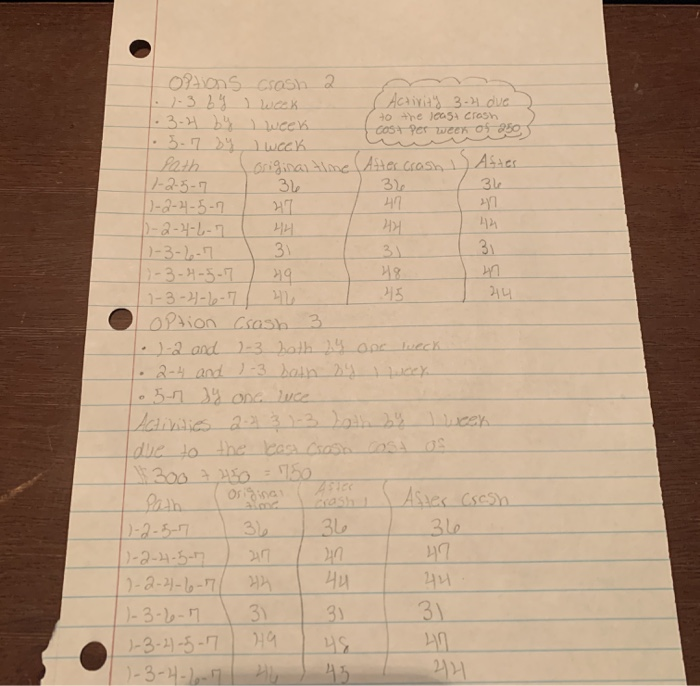 Options crash 2
• 1-3 by 1 week
• 3-4 by 1 week
• 5-7 by 1 week
Activity 3-4 due
to the least crash
cost per week of 250
Path original time After crash 1 After
1-2-5-7 36 36 36
1-2-4-5-7 47 47 47
1-2-4-6-7 44 44 44
1-3-6-7 31 31 31
1-3-4-5-7 49 48 47
1-3-4-6-7 46 45 44
Option Crash 3
• 1-2 and 1-3 both by one week
• 2-4 and 1-3 both by 1 week
• 5-7 by one
Activities 2-4 & 1-3 both by 1 week
due to the least crash cost of
$300 + 450 = 750
Path original time After crash 1 After crash
1-2-5-7 36 36 36
1-2-4-5-7 47 47 47
1-2-4-6-7 44 44 44
1-3-6-7 31 31 31
1-3-4-5-7 49 48 47
1-3-4-6-7 46 45 44